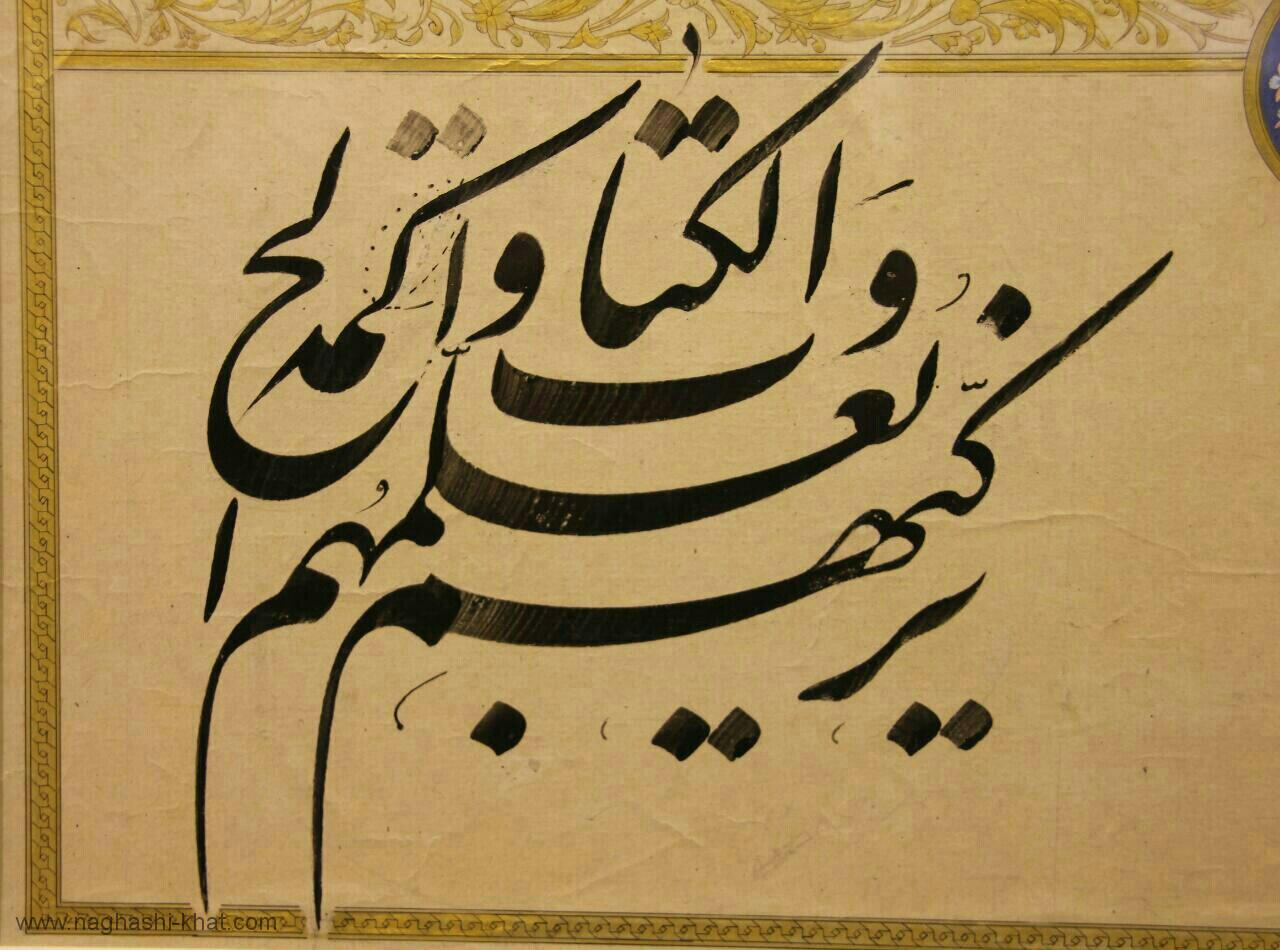 یزکّیهم وَ یعلّمُهم الکتاب و الحکمة
www.naghashi-khat.com